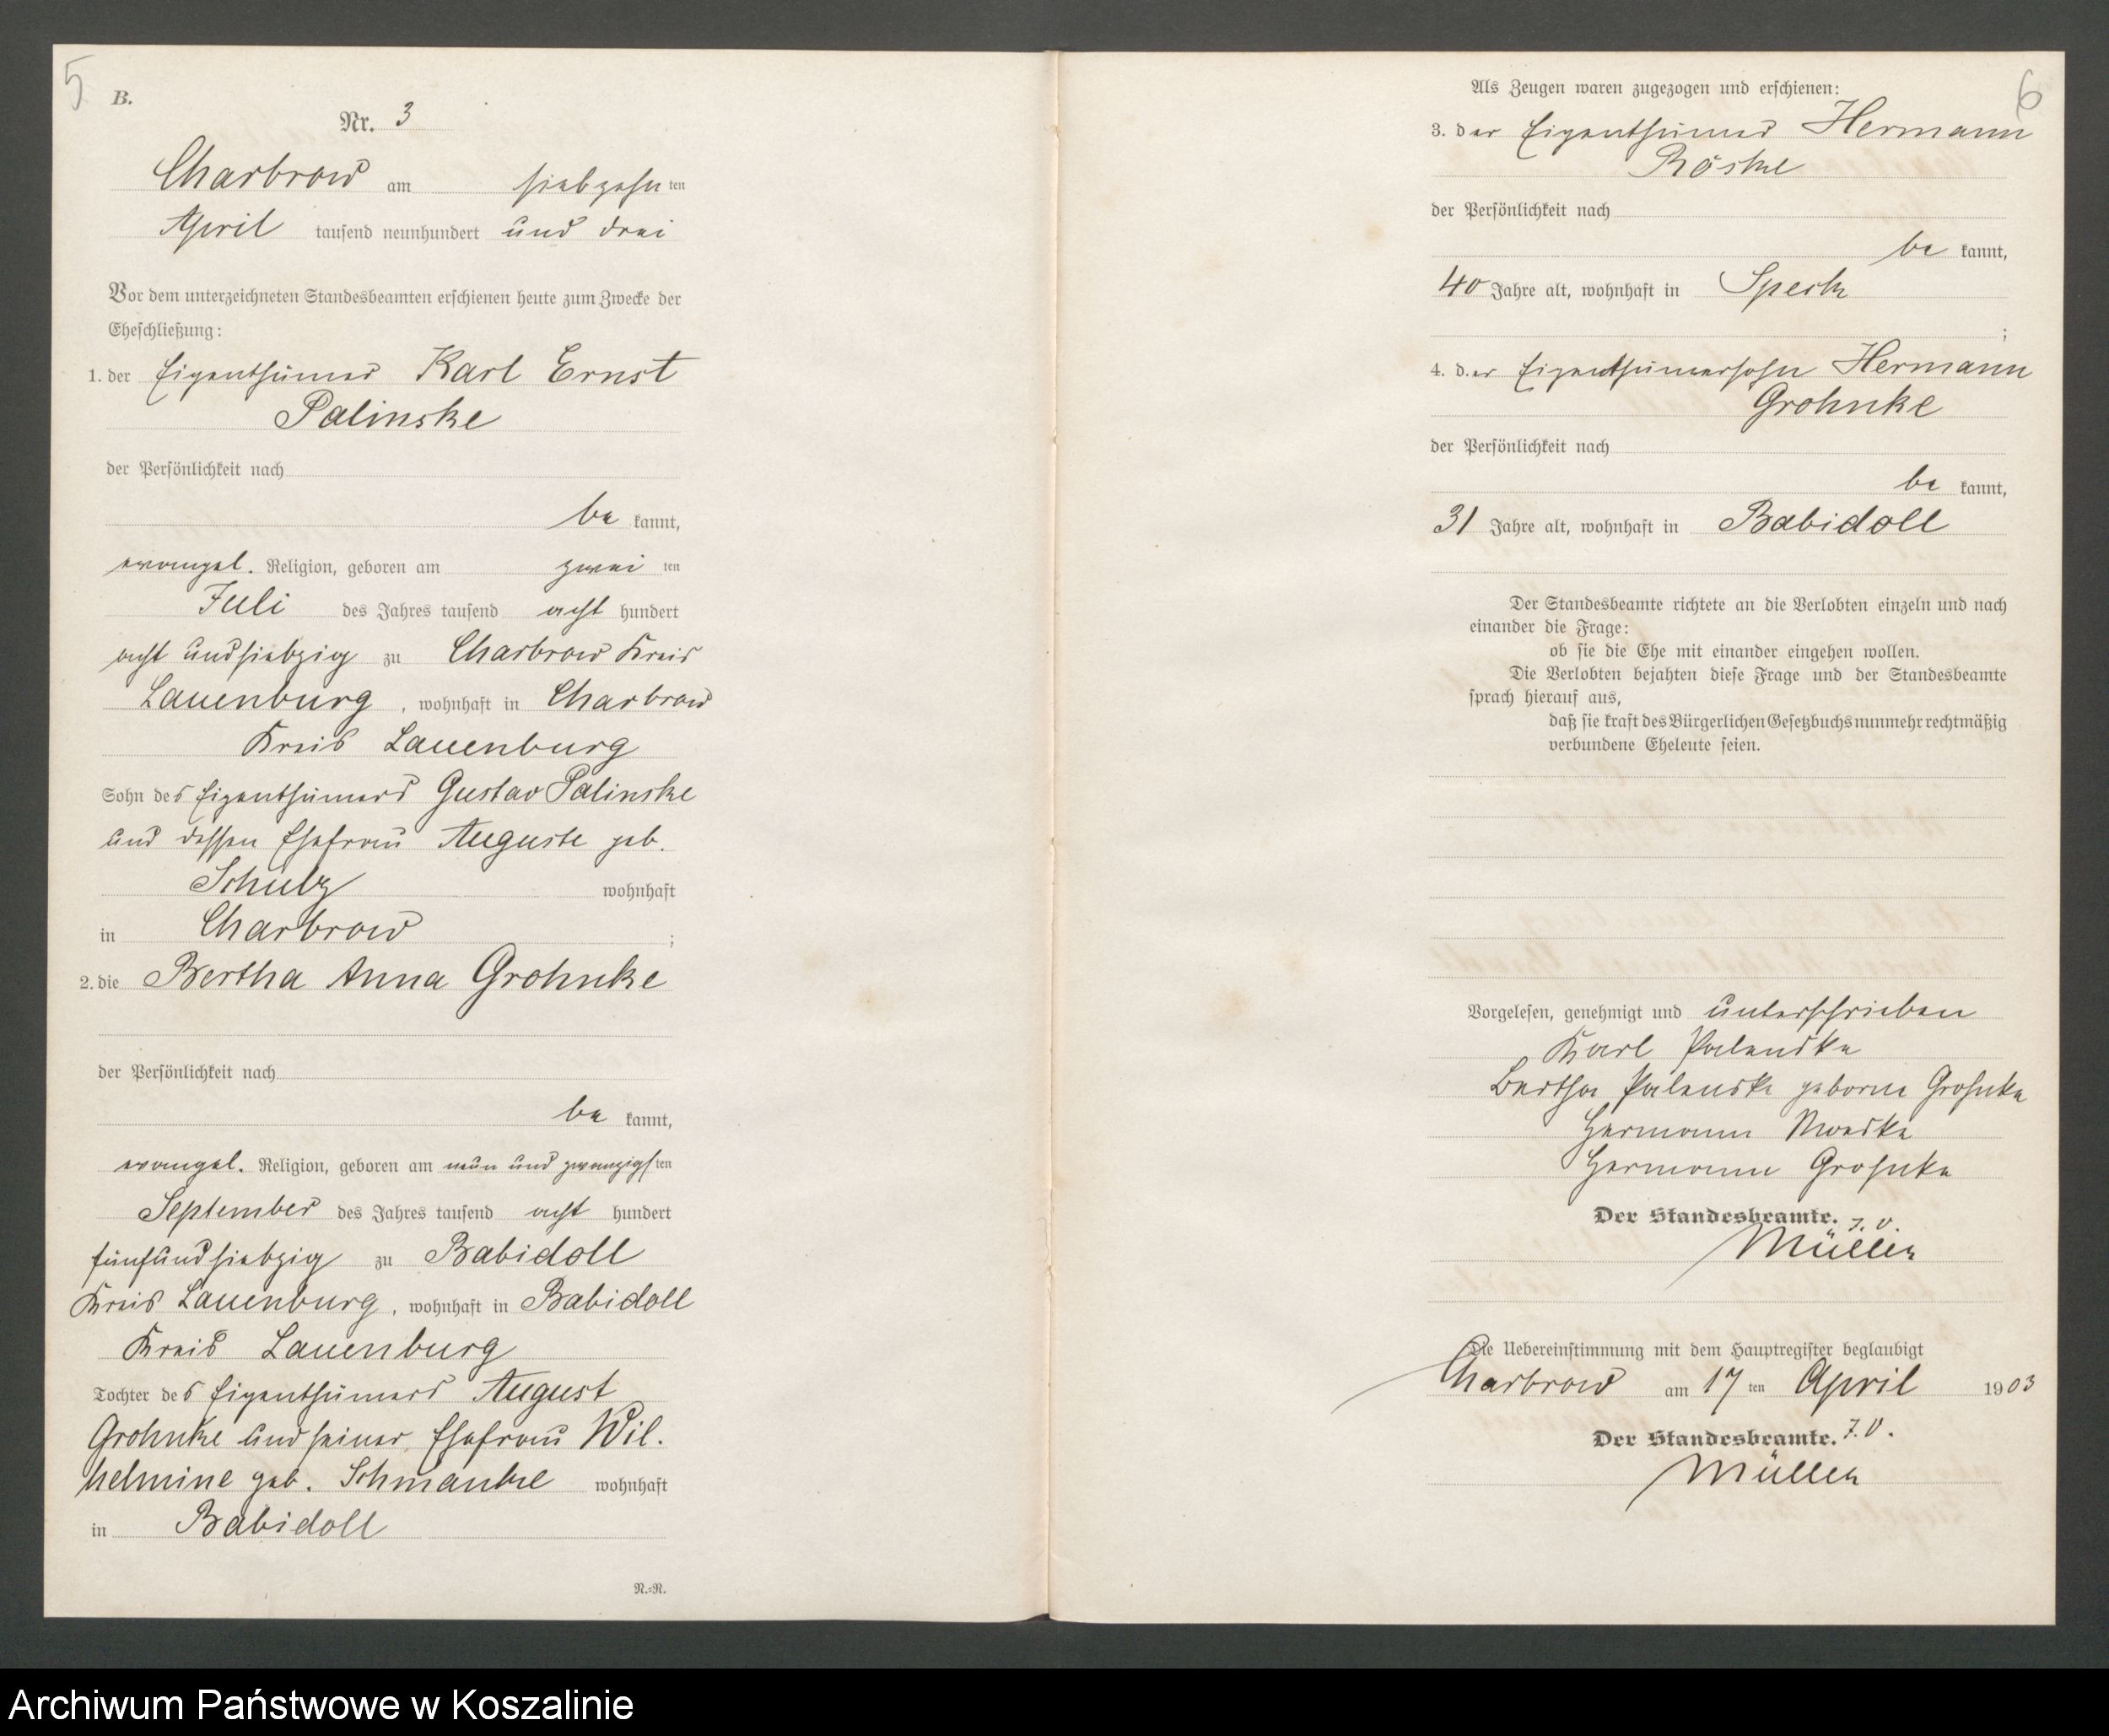 5
B.
Nr. 3
Charbrow am siebzehn ten
April tausend neunhundert und drei
Vor dem unterzeichneten Standesbeamten erschienen heute zum Zwecke der
Eheschließung:
1. der Eigenthümer Karl Ernst
Palinske
der Persönlichkeit nach
be kannt,
evangel. Religion, geboren am zwei ten
Juli des Jahres tausend acht hundert
acht und siebzig zu Charbrow Kreis
Lauenburg, wohnhaft in Charbrow
Kreis Lauenburg
Sohn des Eigenthümers Gustav Palinske
und dessen Ehefrau Auguste geb.
Schulz wohnhaft
in Charbrow ;
2. die Bertha Anna Grohnke
der Persönlichkeit nach
be kannt,
evangel. Religion, geboren am neun und zwanzigsten
September des Jahres tausend acht hundert
fünfundsiebzig zu Babidoll
Kreis Lauenburg, wohnhaft in Babidoll
Kreis Lauenburg
Tochter des Eigenthümers August
Grohnke und seiner Ehefrau Wil.
helmine geb. Schmanke wohnhaft
in Babidoll
N.=N.
6
Als Zeugen waren zugezogen und erschienen:
3. der Eigenthümer Hermann
Röske
der Persönlichkeit nach
be kannt,
40 Jahre alt, wohnhaft in Speck
;
4. der Eigenthümersohn Hermann
Grohnke
der Persönlichkeit nach
be kannt,
31 Jahre alt, wohnhaft in Babidoll
Der Standesbeamte richtete an die Verlobten einzeln und nach
einander die Frage:
ob sie die Ehe mit einander eingehen wollen.
Die Verlobten bejahten diese Frage und der Standesbeamte
sprach hierauf aus,
daß sie kraft des Bürgerlichen Gesetzbuchs nunmehr rechtmäßig
verbundene Eheleute seien.
Vorgelesen, genehmigt und unterschrieben
Karl Palenske
Bertha Palenske geborne Grohnke
Hermann
Hermann Grohnke
Der Standesbeamte. J. V.
Müller
Die Uebereinstimmung mit dem Hauptregister beglaubigt
Charbrow am 17 ten April 1903
Der Standesbeamte. J. V.
Müller
Archiwum Państwowe w Koszalinie